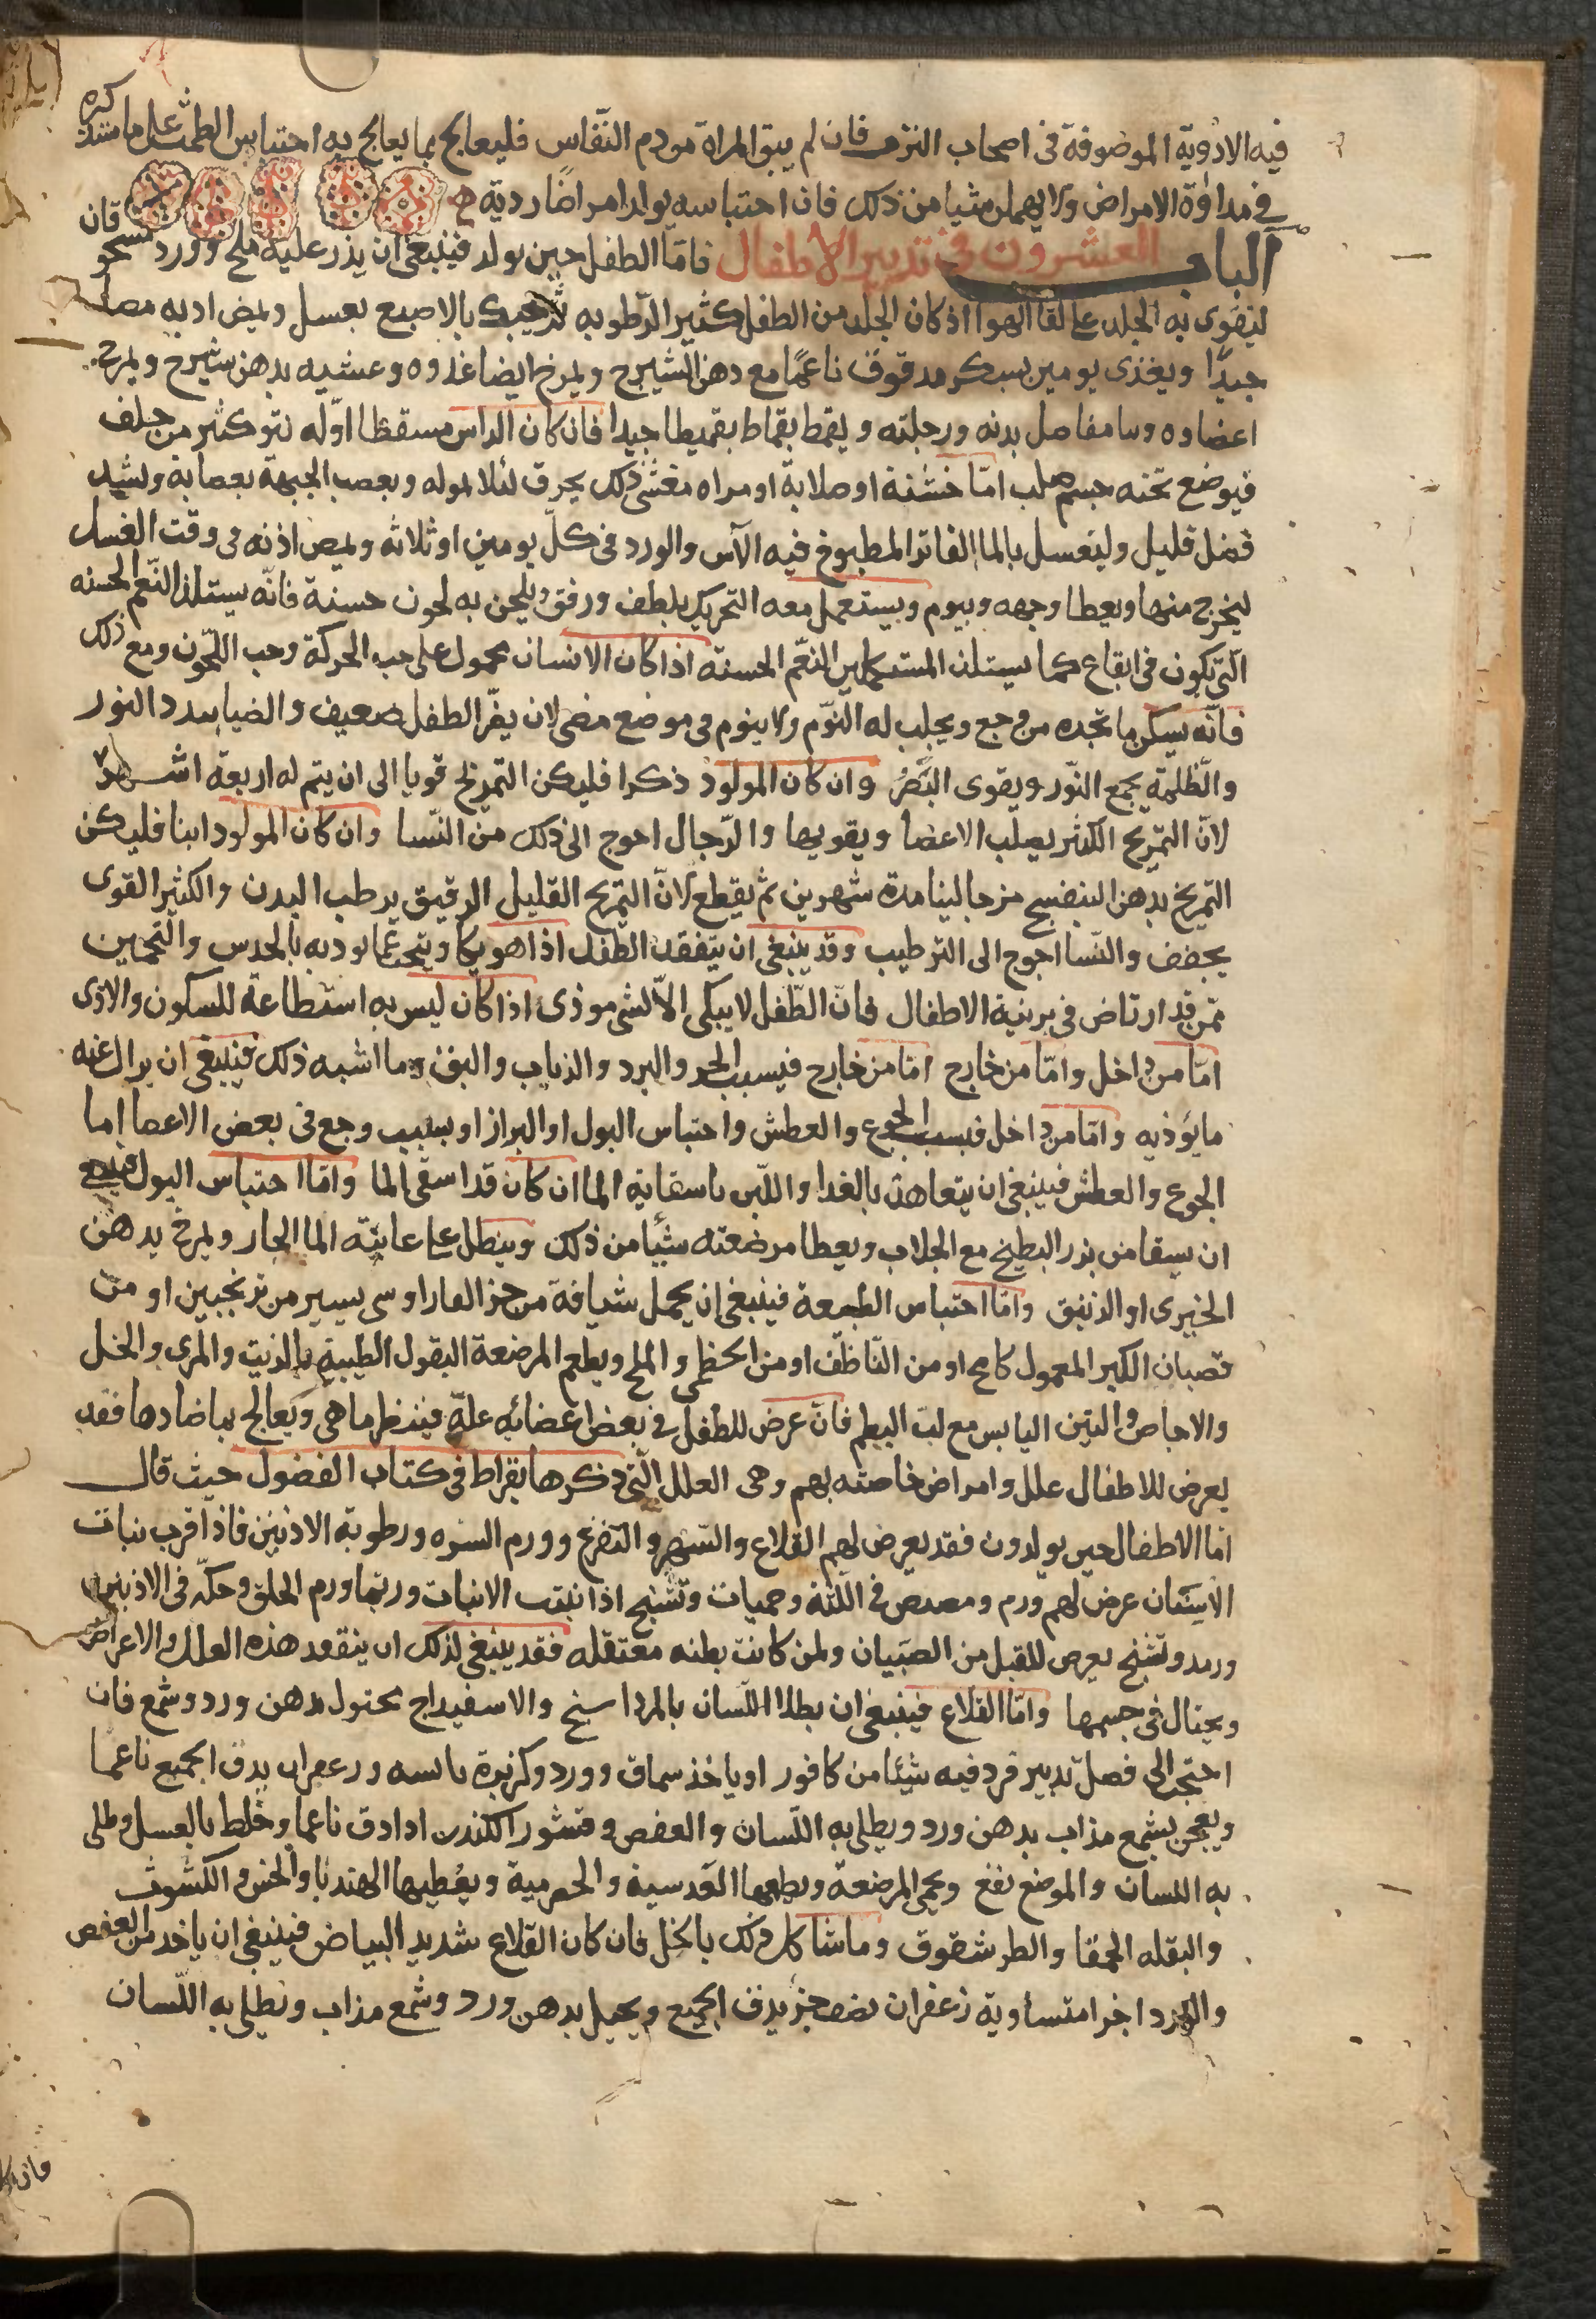 فيه الادوية الموضوفة في اصحاب النزف فان لم يبق المراة من دم النفاس فليعالج بما يعالج به احتباس الطمث على ما سنذكره
في مداوة الامراض ولا يهمل شيا من ذلك فان احتباسه يولد امراضا ردية
الباب العشرون في تدبير الاطفال فاما الطفل حين يولد فينبغي ان يذر عليه ملح وورد مسحوقان
ليقوى به الجلد على لقا الهوا اذ كان الجلد من الطفل كثير الرطوبه ثم يحنك بالاصبع بعسل
جيدا ويغذى يومين بسكر مدقوق ناعما مع دهن الشيرج ويمرخ ايضا غدوه وعشيه بدهن شيرج ويمرخ
اعضاوه وسا مفاصل بدنه ورجلته ويقمط بقماط بقميطا جيدا فان كان الراس مسقطا اوله نتو كثير من خلف
فيوضع تحته جسم صلب اما خشنة او صلابة او مراه مغشى ذلك بحرق لئلا يوله ويعصب الجبهة بعصابة وتشيل
فضل قليل وليغسل بالما الفاتر المطبوخ فيه الآس والورد في كل يومين او ثلاثه ويمص اذنه في وقت الغسل
ليخرج منها ويغطا وجهه وينوم ويستعمل معه التحريك بلطف ورفق ويلحن به لحون حسنة فانه يستلذ النغم الحسنه
التي تكون في ايقاع كما يستلذ المستكملين النغم الحسنه اذا كان الانسان مجمول على حب الحركة وحب اللحون ومع ذلك
فانه يسكن ما تجده من وجع ويجلب له النوم ولا ينوم في موضع مضى لان بصر الطفل ضعيف والضيا يبدد النور
والظلمة يجمع النور ويقوى البصر وان كان المولود ذكرا فليكن التمريخ قويا الى ان يتم له اربعة اشهر
لان التمريخ الكثير يصلب الاعضا ويقويها والرجال احوج الى ذلك من النسا وان كان المولود ابنا فليكن
التمريخ بدهن البنفسج مزجا لينا مدة شهرين ثم يقطع لان التمريخ القليل الرقيق يرطب البدن والكثير القوى
يجفف والنسا احوج الى الترطيب وقد ينبغي ان يتفقد الطفل اذا هو بكا ويبحث عما يوديه بالحدس والتخمين
ممن قد ارتاض في تربية الاطفال فان الطفل لا يبكى الا لشى موذى اذا كان ليس به استطاعة للسكون والاذى
اما من داخل واما من خارج اما من خارج فبسبب الحر والبرد والذباب والبق وما اشبه ذلك فينبغي ان يزال عنه
ما يؤذيه واما من داخل فبسبب الجوع والعطش واحتباس البول او البراز او بسبب وجع في بعض الاعضا اما
الجوع والعطش فينبغي ان يتعاهد بالغدا واللبن باسقايه الما ان كان قد اسقى الما واما احتباس البول فينبغي
ان يسقا من بزر البطيخ مع الجلاب ويعطا مرضعته شيئا من ذلك وينطل على عانته الما الحار ويمرخ بدهن
الخيرى او الزنبق واما احتباس الطبيعة فينبغي ان يحمل شيافة من خرو الفار او شى يسير من ترنجبين او من
قضبان الكبر المعمول كامخ او من الناطف او من الخطمى والملح ويطعم المرضعة البقول الطيبة بالزيت والمرى والخل
والاجاص والتين اليابس مع لب البطم فان عرض للطفل في بعض اعضائه علة فينظر ما هي ويعالج بما ضادها فقد
يعرض للاطفال علل وامراض خاصته بهم وهي العلل التي ذكرها بقراط في كتاب الفصول حيث قال
اما الاطفال حين يولدون فقد يعرض لهم القلاع والسهر والتفزع وورم السره ورطوبة الاذنين فاذا قرب نبات
الاسنان عرض لهم ورم ومضيض في اللثة وحميات وتشنج اذا نبتت الانياب وربما ورم الحلق وحكة في الاذنين
ورمد وتشنج يعرض للقبل من الصبيان ولمن كانت بطنه معتقله فقد ينبغي لذلك ان يتفقد هذه العلل والاعراض
ويحتال في حسمها واما القلاع فينبغي ان يطلا اللسان بالمرداسنج والاسفيداج محلول بدهن ورد وشمع فان
احتجت الى فضل تدبير فزد فيه شيئا من كافور او ياخذ سماق وورد وكزبرة يابسه وزعفران يدق الجميع ناعما
ويعجن بشمع مذاب بدهن ورد ويطلى به اللسان والعفص وقشور الكندر اذا دق ناعما وخلط بالعسل وطلى
به اللسان والموضع نفع ويحمى المرضعة ويطعمها العدسية والحصرمية ويعطيها الهندبا والخس والكشوث
والبقله الحمقا والطرشقوق وما شاكل ذلك بالخل فان كان القلاع شديد البياض فينبغي ان ياخد من العفص
والورد اجزا متساوية زعفران نصف جز يدق الجميع ويحيل بدهن ورد وشمع مذاب ويطلى به اللسان